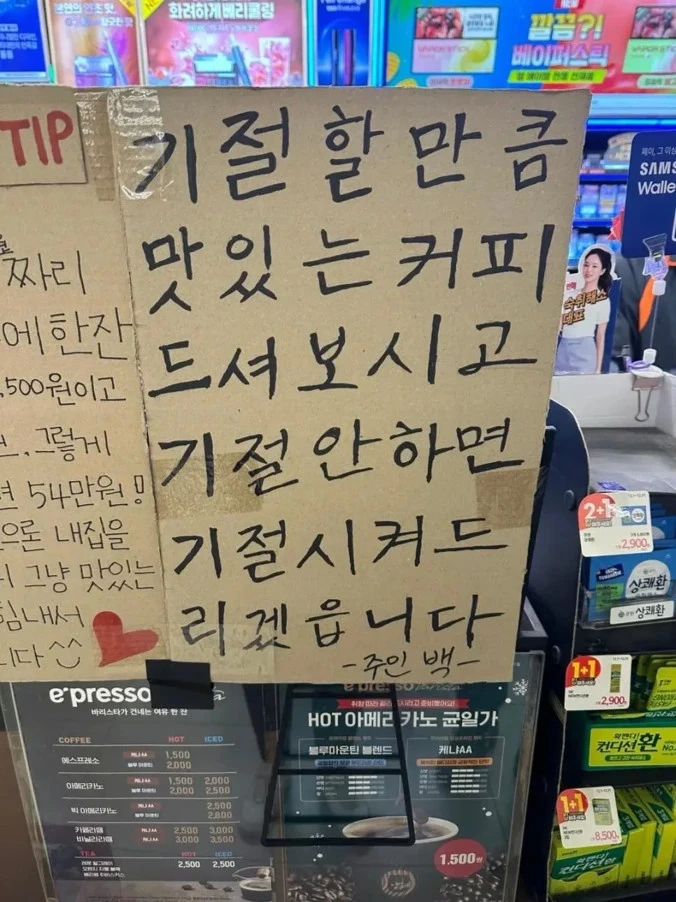 화려하게 베리쿨링
깔끔?!
베이퍼스틱
TIP
짜리
에 한잔
,500원이고
그렇게
면 54만원!
으론 내집을
그냥 맛있는
힘내서
니다
기절할만큼
맛있는커피
드셔보시고
기절안하면
기절시켜드
리겠읍니다
-주인 백-
SAMS
Walle
숙취해소
대표
e·presso
바리스타가 건네는 여유 한 잔
COFFEE HOT ICED
에스프레소 케냐AA 1,500
블루 마운틴 2,000
아메리카노 케냐AA 1,500 2,000
블루 마운틴 2,000 2,500
빅 아메리카노 케냐AA 2,500
블루 마운틴 2,800
카페라떼 케냐AA 2,500 3,000
바닐라라떼 케냐AA 3,000 3,500
TEA HOT ICED
2,500 2,500
HOT 아메리카노 균일가
블루마운틴 블렌드 케냐AA
1,500원
2+1
2,900
상쾌환
상쾌환
1+1
2,900
컨디션환
1+1
8,500